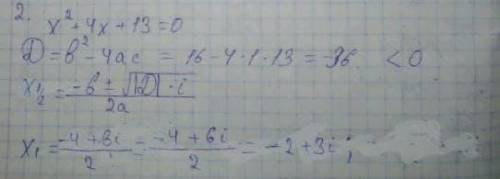 2.
x² + 4x + 13 = 0
D = b² - 4ac = 16 - 4·1·13 = -36 < 0
x½ = (-b ± √|D| · i) / 2a
x₁ = (-4 + 6i) / 2 = (-4 + 6i) / 2 = -2 + 3i ;